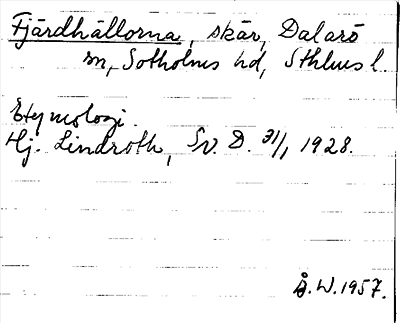 Fjärdhällorna, skär, Dalarö
sn, Sotholms hd, Sthlms l.
Etymologi.
Hj. Lindroth, Sv. D. 31/1 1928.
Å.W.1957.